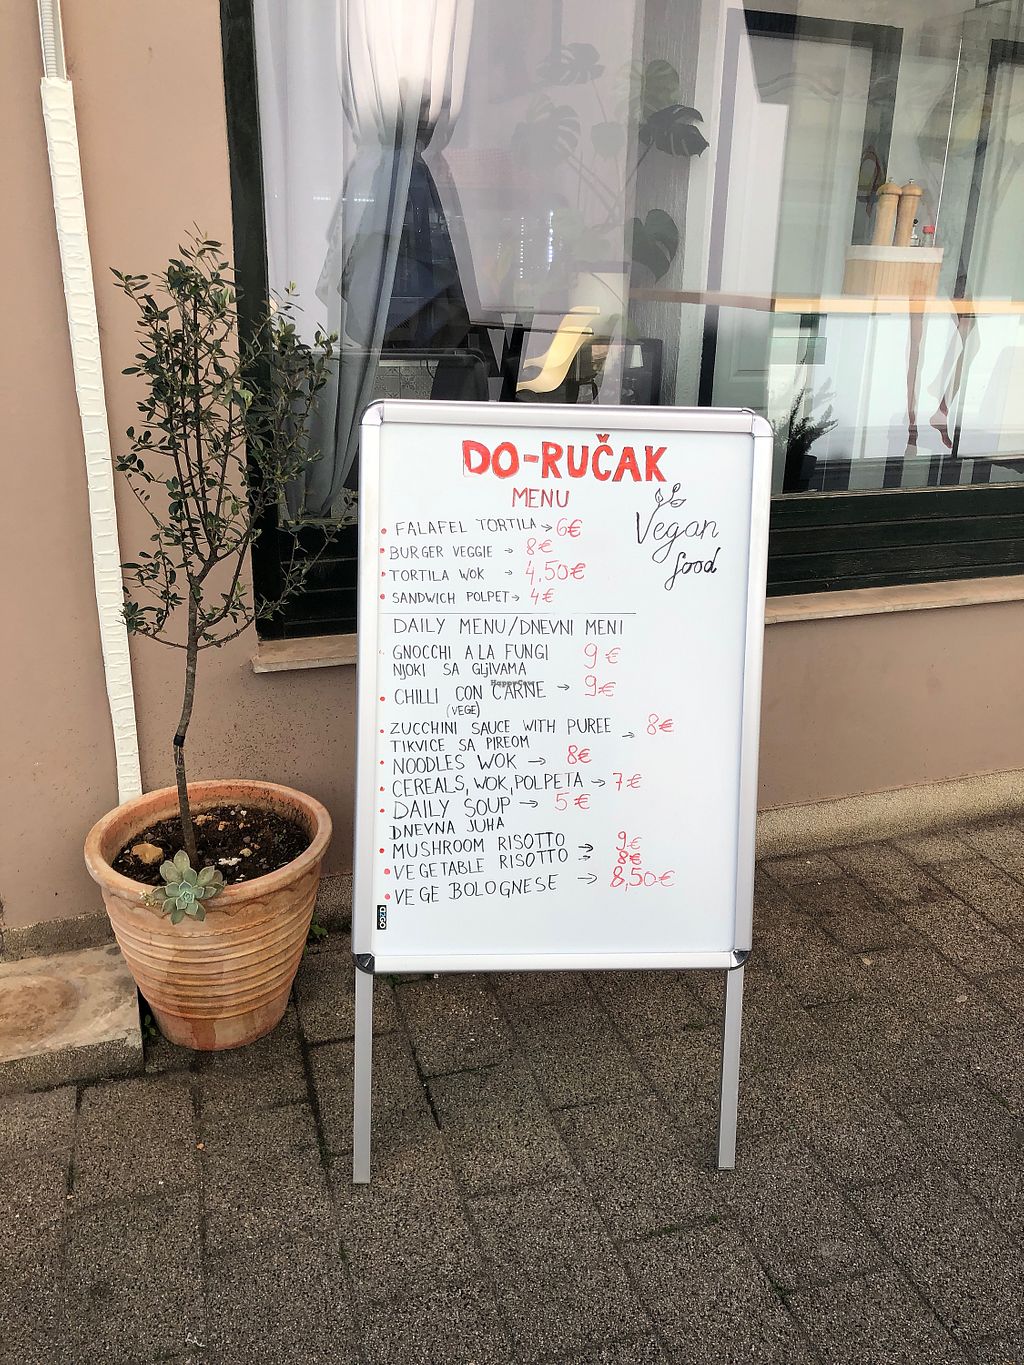 DO-RUČAK
MENU
Vegan
food
• FALAFEL TORTILA → 6€
• BURGER VEGGIE → 8€
• TORTILA WOK → 4,50€
• SANDWICH POLPET → 4€
DAILY MENU/DNEVNI MENI
• GNOCCHI A LA FUNGI 9€
NJOKI SA GLJIVAMA
HappyCow
• CHILLI CON CARNE → 9€
(VEGE)
• ZUCCHINI SAUCE WITH PUREE → 8€
TIKVICE SA PIREOM
• NOODLES WOK → 8€
• CEREALS, WOK, POLPETA → 7€
• DAILY SOUP → 5€
DNEVNA JUHA
• MUSHROOM RISOTTO → 9€
• VEGETABLE RISOTTO → 8€
• VEGE BOLOGNESE → 8,50€